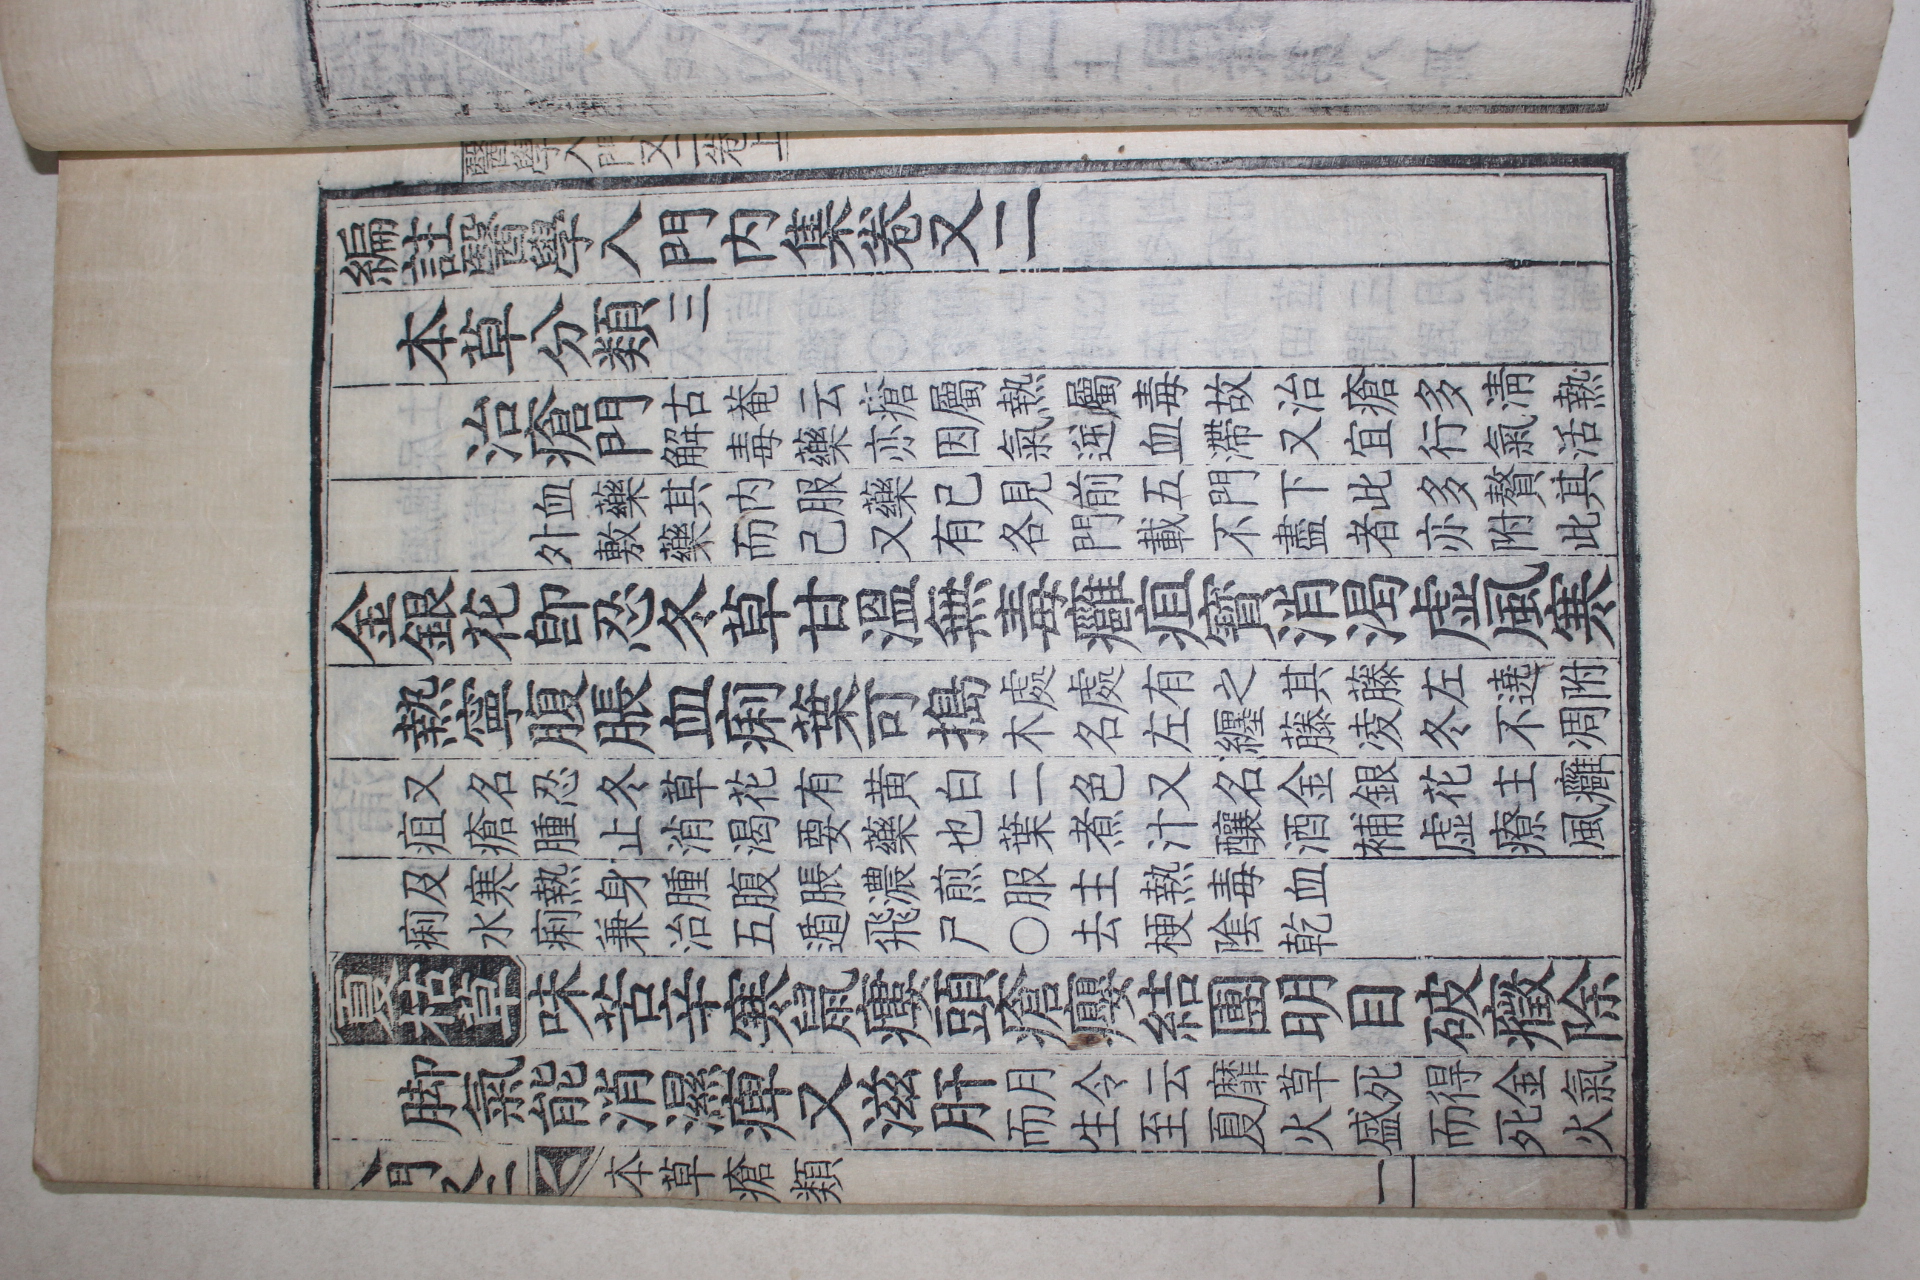 編註醫學入門內集卷又二
本草分類三
治瘡門
古菴云瘡屬熱屬毒故治瘡多淸熱
解毒藥亦因氣逆血滯又宜行氣活
血藥其內服藥已見前五門下此多贅其
外敷藥而已又有各門載不盡者亦附此
金銀花卽忍冬草甘溫無毒癰疽寶消渴虛風寒
熱寧腹脹血痢葉可搗
處處有之其藤左遶附
木名左纏藤凌冬不凋
又名忍冬草花有黄白二色又名金銀花主癰
疽瘡腫止消渴要藥也葉煮汁釀酒補虛療風
及寒熱身腫腹脹濃煎服主熱毒血
痢水痢兼治五遁飛尸○去梗陰乾
夏枯草味苦辛寒鼠瘻頭瘡癭結團明目破癥除
脚氣能消濕痺又滋肝
月令云靡草死得金氣
而生至夏火盛而死火
入門又二 本草瘡類 一
醫學入門又二卷上